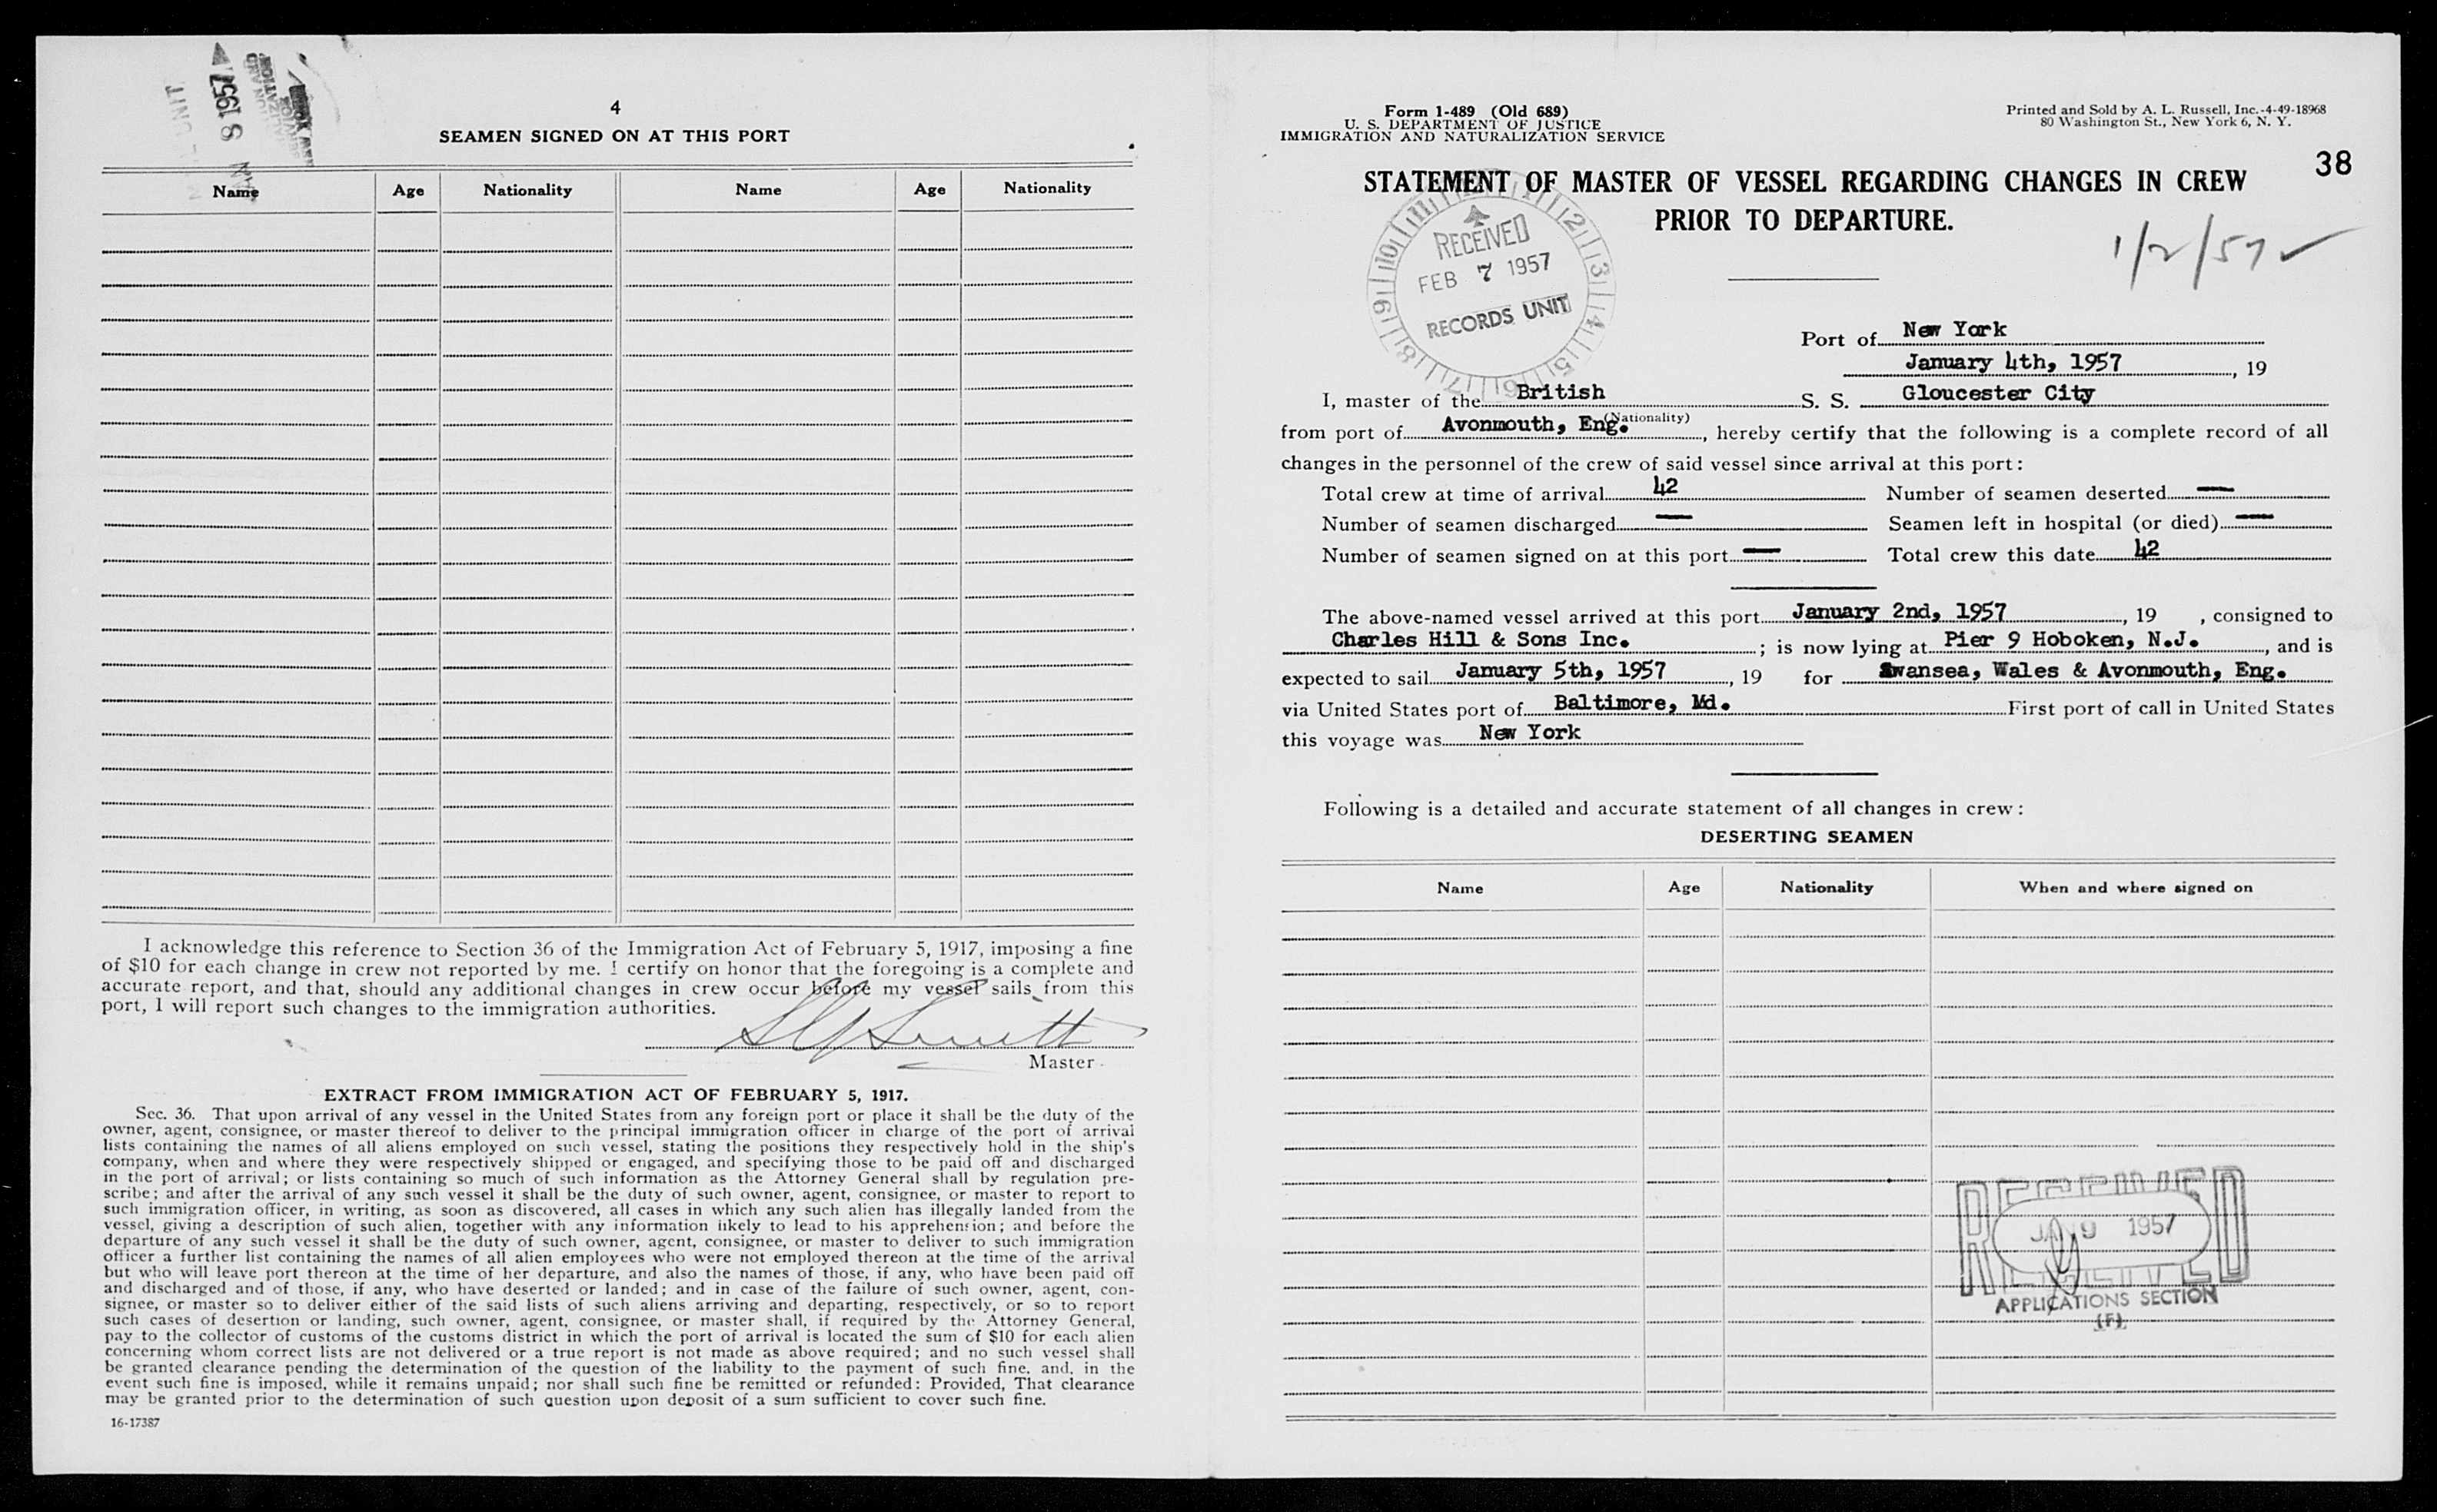 8 1957
4
SEAMEN SIGNED ON AT THIS PORT
Name Age Nationality Name Age Nationality
I acknowledge this reference to Section 36 of the Immigration Act of February 5, 1917, imposing a fine
of $10 for each change in crew not reported by me. I certify on honor that the foregoing is a complete and
accurate report, and that, should any additional changes in crew occur before my vessel sails from this
port, I will report such changes to the immigration authorities.
Master
EXTRACT FROM IMMIGRATION ACT OF FEBRUARY 5, 1917.
Sec. 36. That upon arrival of any vessel in the United States from any foreign port or place it shall be the duty of the
owner, agent, consignee, or master thereof to deliver to the principal immigration officer in charge of the port of arrival
lists containing the names of all aliens employed on such vessel, stating the positions they respectively hold in the ship's
company, when and where they were respectively shipped or engaged, and specifying those to be paid off and discharged
in the port of arrival; or lists containing so much of such information as the Attorney General shall by regulation pre-
scribe; and after the arrival of any such vessel it shall be the duty of such owner, agent, consignee, or master to report to
such immigration officer, in writing, as soon as discovered, all cases in which any such alien has illegally landed from the
vessel, giving a description of such alien, together with any information likely to lead to his apprehension; and before the
departure of any such vessel it shall be the duty of such owner, agent, consignee, or master to deliver to such immigration
officer a further list containing the names of all alien employees who were not employed thereon at the time of the arrival
but who will leave port thereon at the time of her departure, and also the names of those, if any, who have been paid off
and discharged and of those, if any, who have deserted or landed; and in case of the failure of such owner, agent, con-
signee, or master so to deliver either of the said lists of such aliens arriving and departing, respectively, or so to report
such cases of desertion or landing, such owner, agent, consignee, or master shall, if required by the Attorney General,
pay to the collector of customs of the customs district in which the port of arrival is located the sum of $10 for each alien
concerning whom correct lists are not delivered or a true report is not made as above required; and no such vessel shall
be granted clearance pending the determination of the question of the liability to the payment of such fine, and, in the
event such fine is imposed, while it remains unpaid; nor shall such fine be remitted or refunded: Provided, That clearance
may be granted prior to the determination of such question upon deposit of a sum sufficient to cover such fine.
16-17387
Form 1-489 (Old 689)
U. S. DEPARTMENT OF JUSTICE
IMMIGRATION AND NATURALIZATION SERVICE
Printed and Sold by A. L. Russell, Inc.-4-49-18968
80 Washington St., New York 6, N. Y.
38
STATEMENT OF MASTER OF VESSEL REGARDING CHANGES IN CREW
PRIOR TO DEPARTURE.
1/2/57
RECEIVED
FEB 7 1957
RECORDS UNIT
Port of New York
January 4th, 1957, 19
I, master of the British S. S. Gloucester City
(Nationality)
from port of Avonmouth, Eng., hereby certify that the following is a complete record of all
changes in the personnel of the crew of said vessel since arrival at this port:
Total crew at time of arrival 42 Number of seamen deserted —
Number of seamen discharged — Seamen left in hospital (or died) —
Number of seamen signed on at this port — Total crew this date 42
The above-named vessel arrived at this port January 2nd, 1957, 19 , consigned to
Charles Hill & Sons Inc. ; is now lying at Pier 9 Hoboken, N.J., and is
expected to sail January 5th, 1957, 19 for Swansea, Wales & Avonmouth, Eng.
via United States port of Baltimore, Md. First port of call in United States
this voyage was New York
Following is a detailed and accurate statement of all changes in crew:
DESERTING SEAMEN
Name Age Nationality When and where signed on
RECEIVED
JAN 9 1957
APPLICATIONS SECTION
(F)